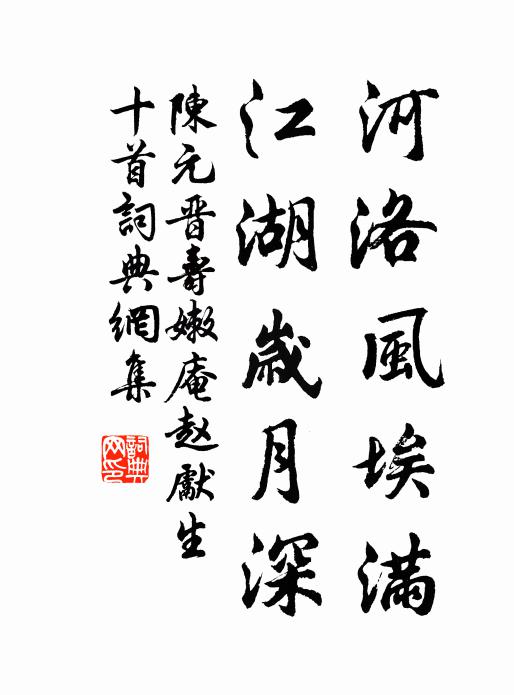 河洛風埃滿
江湖歲月深
陳元晋壽嫩庵赵獻生
十首詞典網集
詞典网印